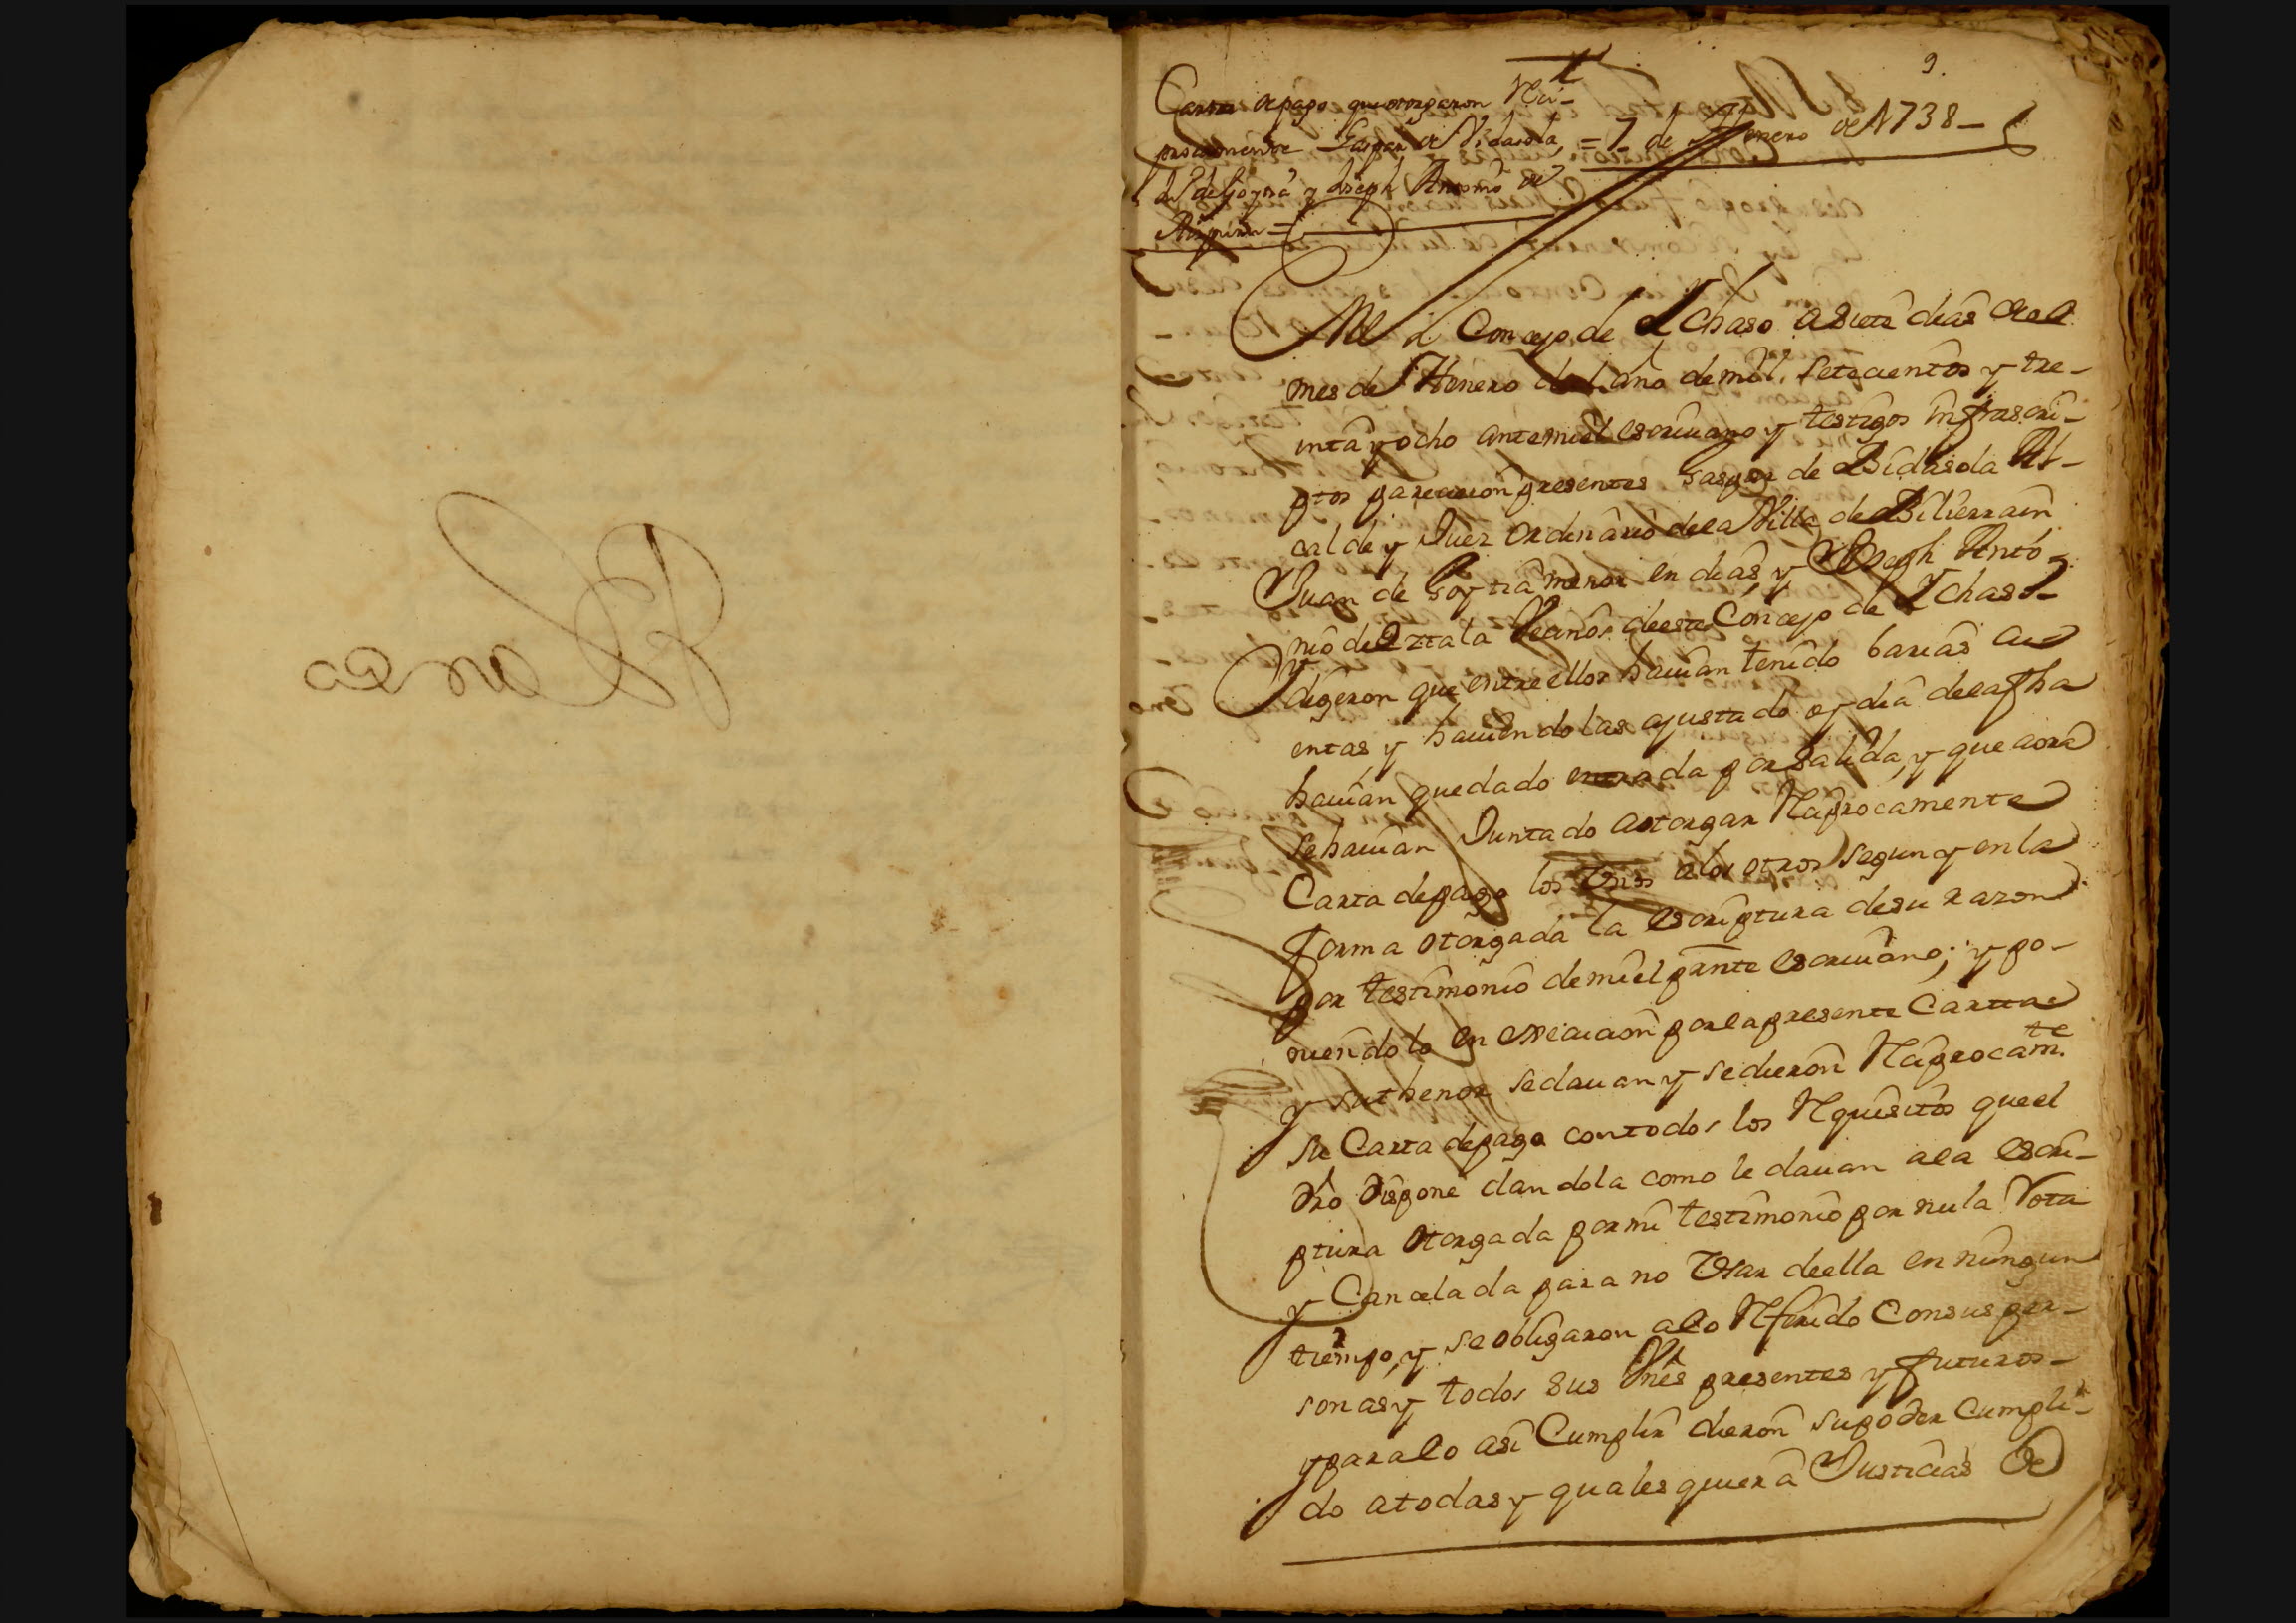 9.
Carta de pago que otorgaron Reci-
procamente Gaspar de Vidasola, = 7 de Henero de 1738 -
Ju⁰ de Goytia y Joseph Antonio de
En el Concejo de Ychaso a Siete dias del
mes de Henero del año de mil Setecientos y tre-
inta y ocho ante mi el escriuano y testigos infrascri-
ptos parecieron presentes Gaspar de Bidasola Al-
calde y Juez Ordinario de la Villa de Bilierrain
Juan de Goytia menor en dias, y Joseph Anto-
nio de Eztala Vecinos de este Concejo de Ychaso
y digeron que entre ellos hauian tenido barias cu
entas y hauiendolas ajustado oy dia de la fha
hauian quedado entrada por salida, y que aora
se hauian Juntado aotorgar Reciprocamente
Carta de pago los Unos alos otros segun y en la
forma otorgada la escriptura de su razon
por testimonio de mi el press.te escriuano; y po-
niendolo en execucion por la presente Carta
y su thenor se dauan y se dieron Reciprocam.te
su Carta de pago con todos los Requisitos que el
dro dispone dandola como le dauan a la escri-
ptura Otorgada por mi testimonio por nula Rota
y Cancelada para no Usar de ella en ningun
tiempo, y se obligaron a lo Referido Con sus per-
sonas y todos sus Vnes presentes y futuros -
y para lo asi Cumplir dieron su poder Cumpli-
do a todas y quales quiera Justicias de